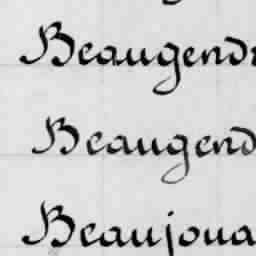 Beaugendr
Beaugend
Beaujoua